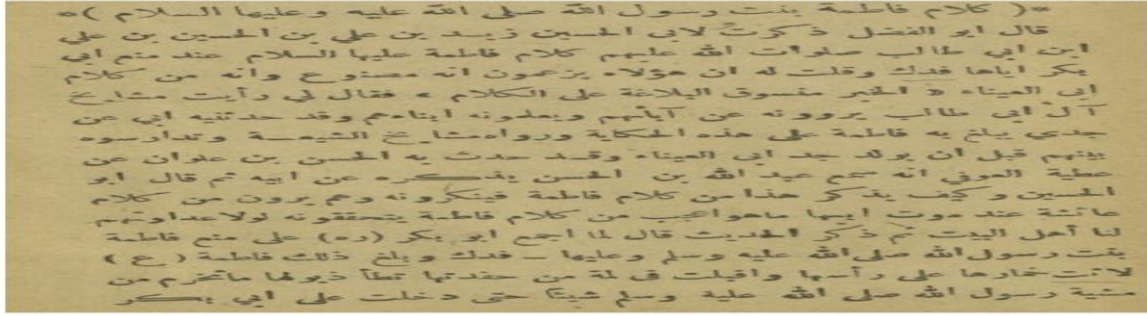 *( كلام فاطمة بنت رسول الله صلى الله عليه وعليها السلام )*
قال ابو الفضل ذكرت لابي الحسين زيد بن علي بن الحسين بن علي
ابن ابي طالب صلوات الله عليهم كلام فاطمة عليها السلام عند منع ابي
بكر اياها فدك وقلت له ان هؤلاء يزعمون انه مصنوع وانه من كلام
ابي العيناء « الخبر منسوق البلاغة على الكلام » فقال لي رأيت مشايخ
آل ابي طالب يروونه عن آبائهم ويعلمونه ابناءهم وقد حدثنيه ابي عن
جدي يبلغ به فاطمة على هذه الحكاية ورواه مشايخ الشيعة وتدارسوه
بينهم قبل ان يولد جد ابي العيناء وقد حدث به الحسن بن علوان عن
عطية العوفي انه سمع عبد الله بن الحسن يذكره عن ابيه ثم قال ابو
الحسين وكيف يذكر هذا من كلام فاطمة فينكرونه وهم يرون من كلام
عائشة عند موت ابيها ماهو اعجب من كلام فاطمة يتحققونه لولا عداوتهم
لنا أهل البيت ثم ذكر الحديث قال لما اجمع ابو بكر (ره) على منع فاطمة
بنت رسول الله صلى الله عليه وسلم وعليها – فدك وبلغ ذلك فاطمة ( ع )
لاثت خمارها على رأسها واقبلت في لمة من حفدتها تطأ ذيولها ماتخرم من
مشية رسول الله صلى الله عليه وسلم شيئا حتى دخلت على ابي بكر